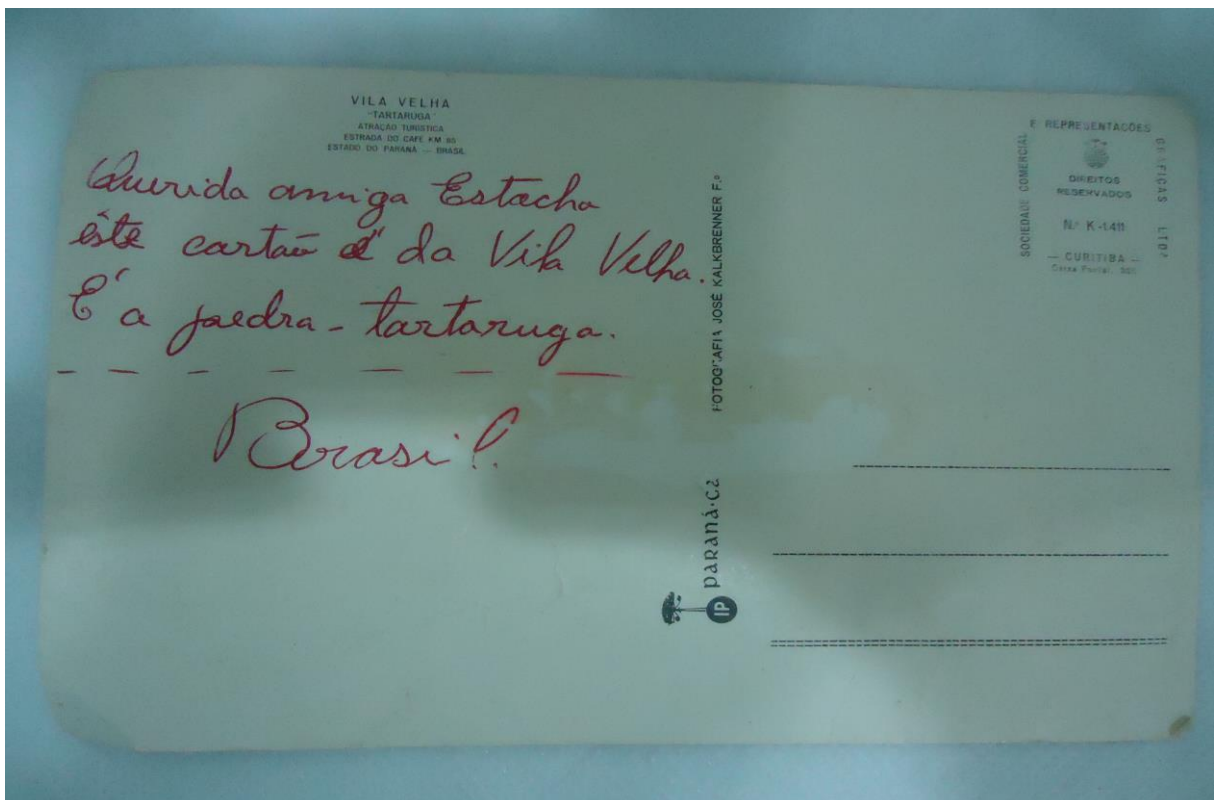 VILA VELHA
"TARTARUGA"
ATRAÇÃO TURISTICA
ESTRADA DO CAFÉ KM 85
ESTADO DO PARANÁ — BRASIL
Querida amiga Estacha
êste cartão é da Vila Velha.
É a pedra-tartaruga.
Brasil.
FOTOGRAFIA JOSÉ KALKBRENNER F.º
paraná·Ca
IP
SOCIEDADE COMERCIAL
E REPRESENTAÇÕES
GRÁFICAS LTDª
DIREITOS
RESERVADOS
N.º K-1.411
— CURITIBA —
Caixa Postal,